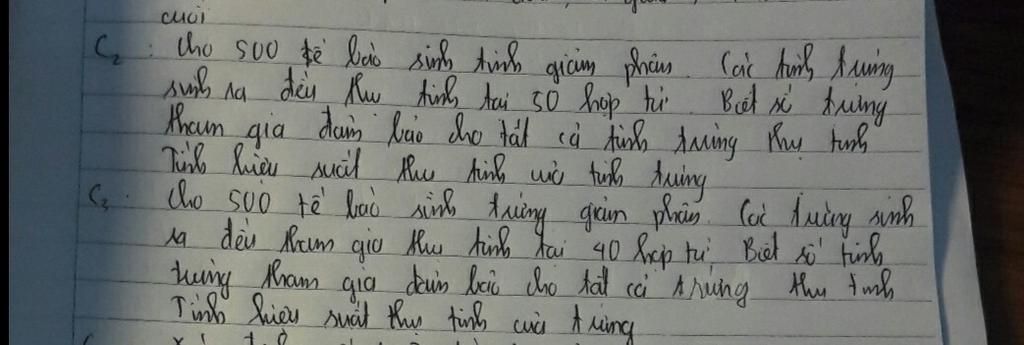 cuối
C₂ : Cho 500 tế bào sinh tinh giảm phân. Các tinh trùng
sinh ra đều thụ tinh tại 50 hợp tử. Biết số trứng
tham gia đảm bảo cho tất cả tinh trùng thụ tinh
Tính hiệu suất thụ tinh của tinh trùng
C₃ : Cho 500 tế bào sinh trứng giảm phân. Các trứng sinh
ra đều tham gia thụ tinh tại 40 hợp tử. Biết số tinh
trùng tham gia đảm bảo cho tất cả trứng thụ tinh
Tính hiệu suất thụ tinh của trứng